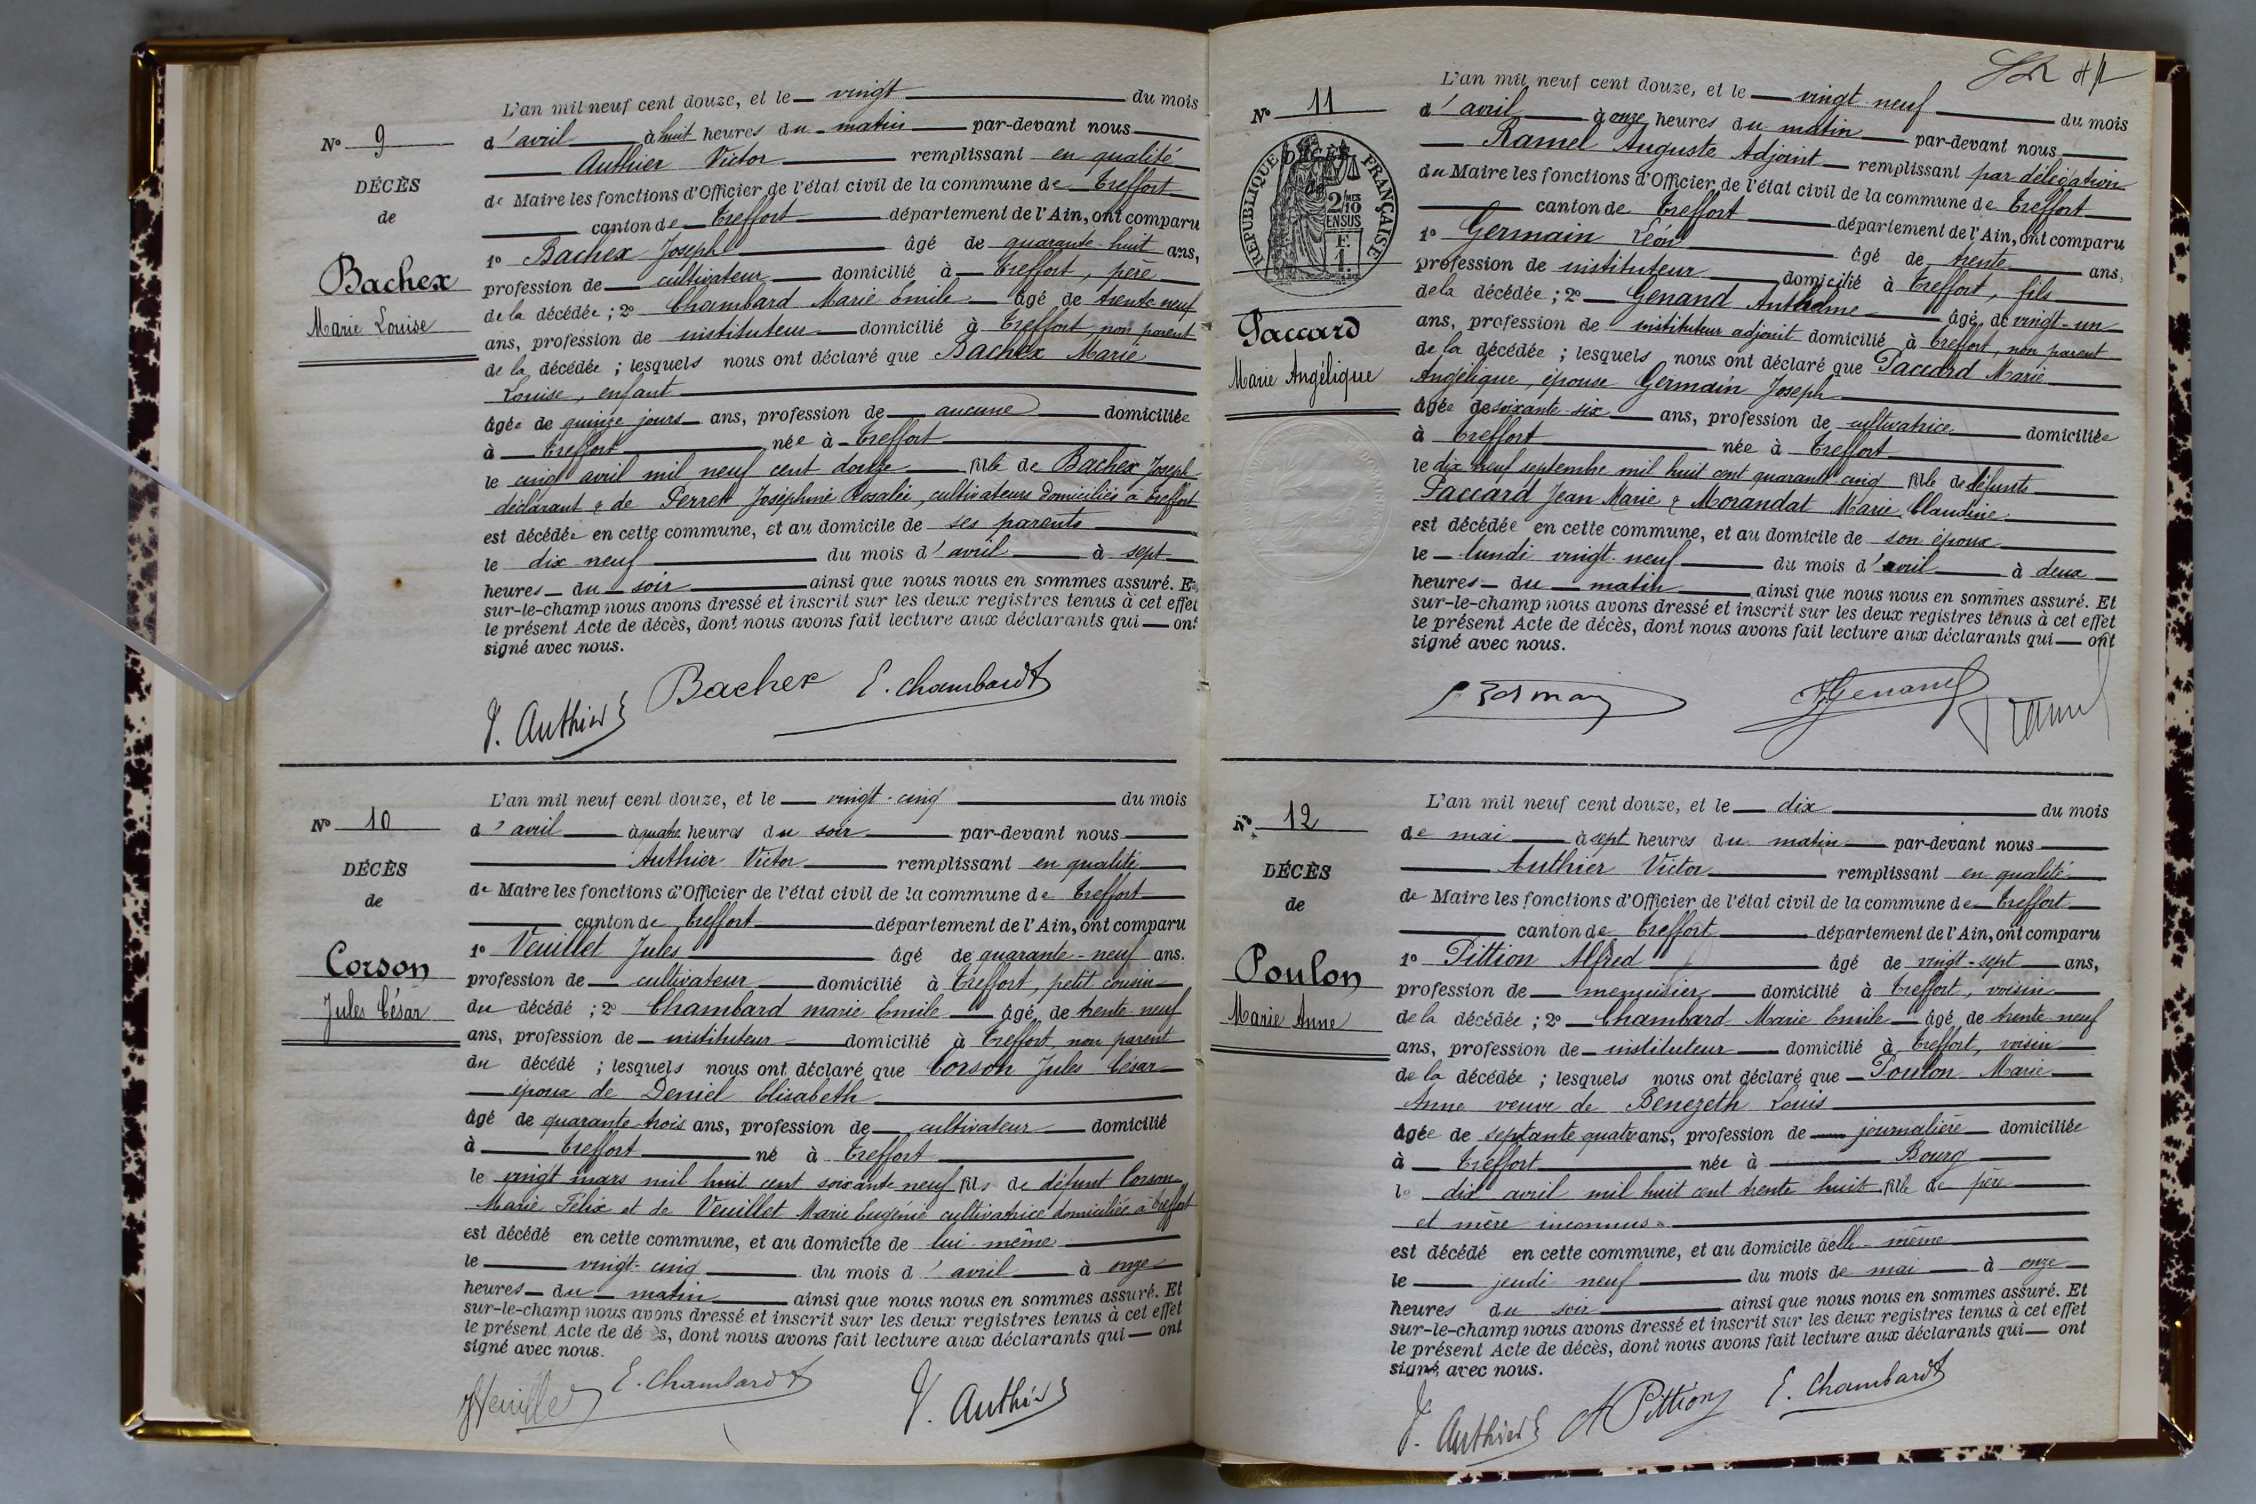 L'an mil neuf cent douze, et le vingt du mois
d'avril à huit heures du matin par-devant nous
Authier Victor remplissant en qualité
de Maire les fonctions d'Officier de l'état civil de la commune de Treffort
canton de Treffort département de l'Ain, ont comparu
1º Bachex Joseph âgé de quarante-huit ans,
profession de cultivateur domicilié à Treffort, père
de la décédée ; 2º Chambard Marie Emile âgé de trente neuf
ans, profession de instituteur domicilié à Treffort non parent
de la décédée ; lesquels nous ont déclaré que Bachex Marie
Louise, enfant
âgée de quinze jours ans, profession de aucune domiciliée
à Treffort née à Treffort
le cinq avril mil neuf cent douze fille de Bachex Joseph
déclarant & de Perret Joséphine Rosalie, cultivateurs domiciliés à Treffort
est décédée en cette commune, et au domicile de ses parents
le dix neuf du mois d'avril à sept
heures du soir ainsi que nous nous en sommes assuré. Et
sur-le-champ nous avons dressé et inscrit sur les deux registres tenus à cet effet
le présent Acte de décès, dont nous avons fait lecture aux déclarants qui ont
signé avec nous.
Nº 9
DÉCÈS
de
Bachex
Marie Louise
V. Authier Bachex E. Chambard
L'an mil neuf cent douze, et le vingt-cinq du mois
d'avril à quatre heures du soir par-devant nous
Authier Victor remplissant en qualité
de Maire les fonctions d'Officier de l'état civil de la commune de Treffort
canton de Treffort département de l'Ain, ont comparu
1º Veuillet Jules âgé de quarante-neuf ans.
profession de cultivateur domicilié à Treffort, petit cousin
du décédé ; 2º Chambard marie Emile âgé de trente neuf
ans, profession de instituteur domicilié à Treffort, non parent
du décédé ; lesquels nous ont déclaré que Corson Jules César
époux de Deniel Elisabeth
âgé de quarante-trois ans, profession de cultivateur domicilié
à Treffort né à Treffort
le vingt mars mil huit cent soixante neuf fils de défunt Corson
Marie Félix et de Veuillet Marie Eugénie cultivatrice domiciliée à Treffort
est décédé en cette commune, et au domicile de lui-même
le vingt-cinq du mois d'avril à onze
heures du matin ainsi que nous nous en sommes assuré. Et
sur-le-champ nous avons dressé et inscrit sur les deux registres tenus à cet effet
le présent Acte de dé s, dont nous avons fait lecture aux déclarants qui ont
signé avec nous.
Nº 10
DÉCÈS
de
Corson
Jules César
JVeuillet E. Chambard V. Authier
L'an mil neuf cent douze, et le vingt-neuf du mois
d'avril à onze heures du matin par-devant nous
Ramel Auguste Adjoint remplissant par délégation
du Maire les fonctions d'Officier de l'état civil de la commune de Treffort
canton de Treffort département de l'Ain, ont comparu
1º Germain Léon âgé de trente ans,
profession de instituteur domicilié à Treffort, fils
de la décédée ; 2º Genand Anthelme âgé de vingt-un
ans, profession de instituteur adjoint domicilié à Treffort, non parent
de la décédée ; lesquels nous ont déclaré que Paccard Marie
Angélique, épouse Germain Joseph
âgée de soixante-six ans, profession de cultivatrice domiciliée
à Treffort née à Treffort
le dix neuf septembre mil huit cent quarante cinq fille de défunts
Paccard Jean Marie & Morandat Marie Claudine
est décédée en cette commune, et au domicile de son époux
le lundi vingt-neuf du mois d'avril à deux
heures du matin ainsi que nous nous en sommes assuré. Et
sur-le-champ nous avons dressé et inscrit sur les deux registres tenus à cet effet
le présent Acte de décès, dont nous avons fait lecture aux déclarants qui ont
signé avec nous.
Nº 11
RÉPUBLIQUE FRANÇAISE
2/10
EN SUS
F.
1.
Paccard
Marie Angélique
Genand Ramel
L'an mil neuf cent douze, et le dix du mois
de mai à sept heures du matin par-devant nous
Authier Victor remplissant en qualité
de Maire les fonctions d'Officier de l'état civil de la commune de Treffort
canton de Treffort département de l'Ain, ont comparu
1º Pittion Alfred âgé de vingt-sept ans,
profession de menuisier domicilié à Treffort, voisin
de la décédée ; 2º Chambard Marie Emile âgé de trente-neuf
ans, profession de instituteur domicilié à Treffort, voisin
de la décédée ; lesquels nous ont déclaré que Poulon Marie
Anne veuve de Benezeth Louis
âgée de septante quatre ans, profession de journalière domiciliée
à Treffort née à Bourg
le dix avril mil huit cent trente huit fille de père
et mère inconnus
est décédé en cette commune, et au domicile d'elle-même
le jeudi neuf du mois de mai à onze
heures du soir ainsi que nous nous en sommes assuré. Et
sur-le-champ nous avons dressé et inscrit sur les deux registres tenus à cet effet
le présent Acte de décès, dont nous avons fait lecture aux déclarants qui ont
signé avec nous.
Nº 12
DÉCÈS
de
Poulon
Marie Anne
V. Authier A Pittion E. Chambard